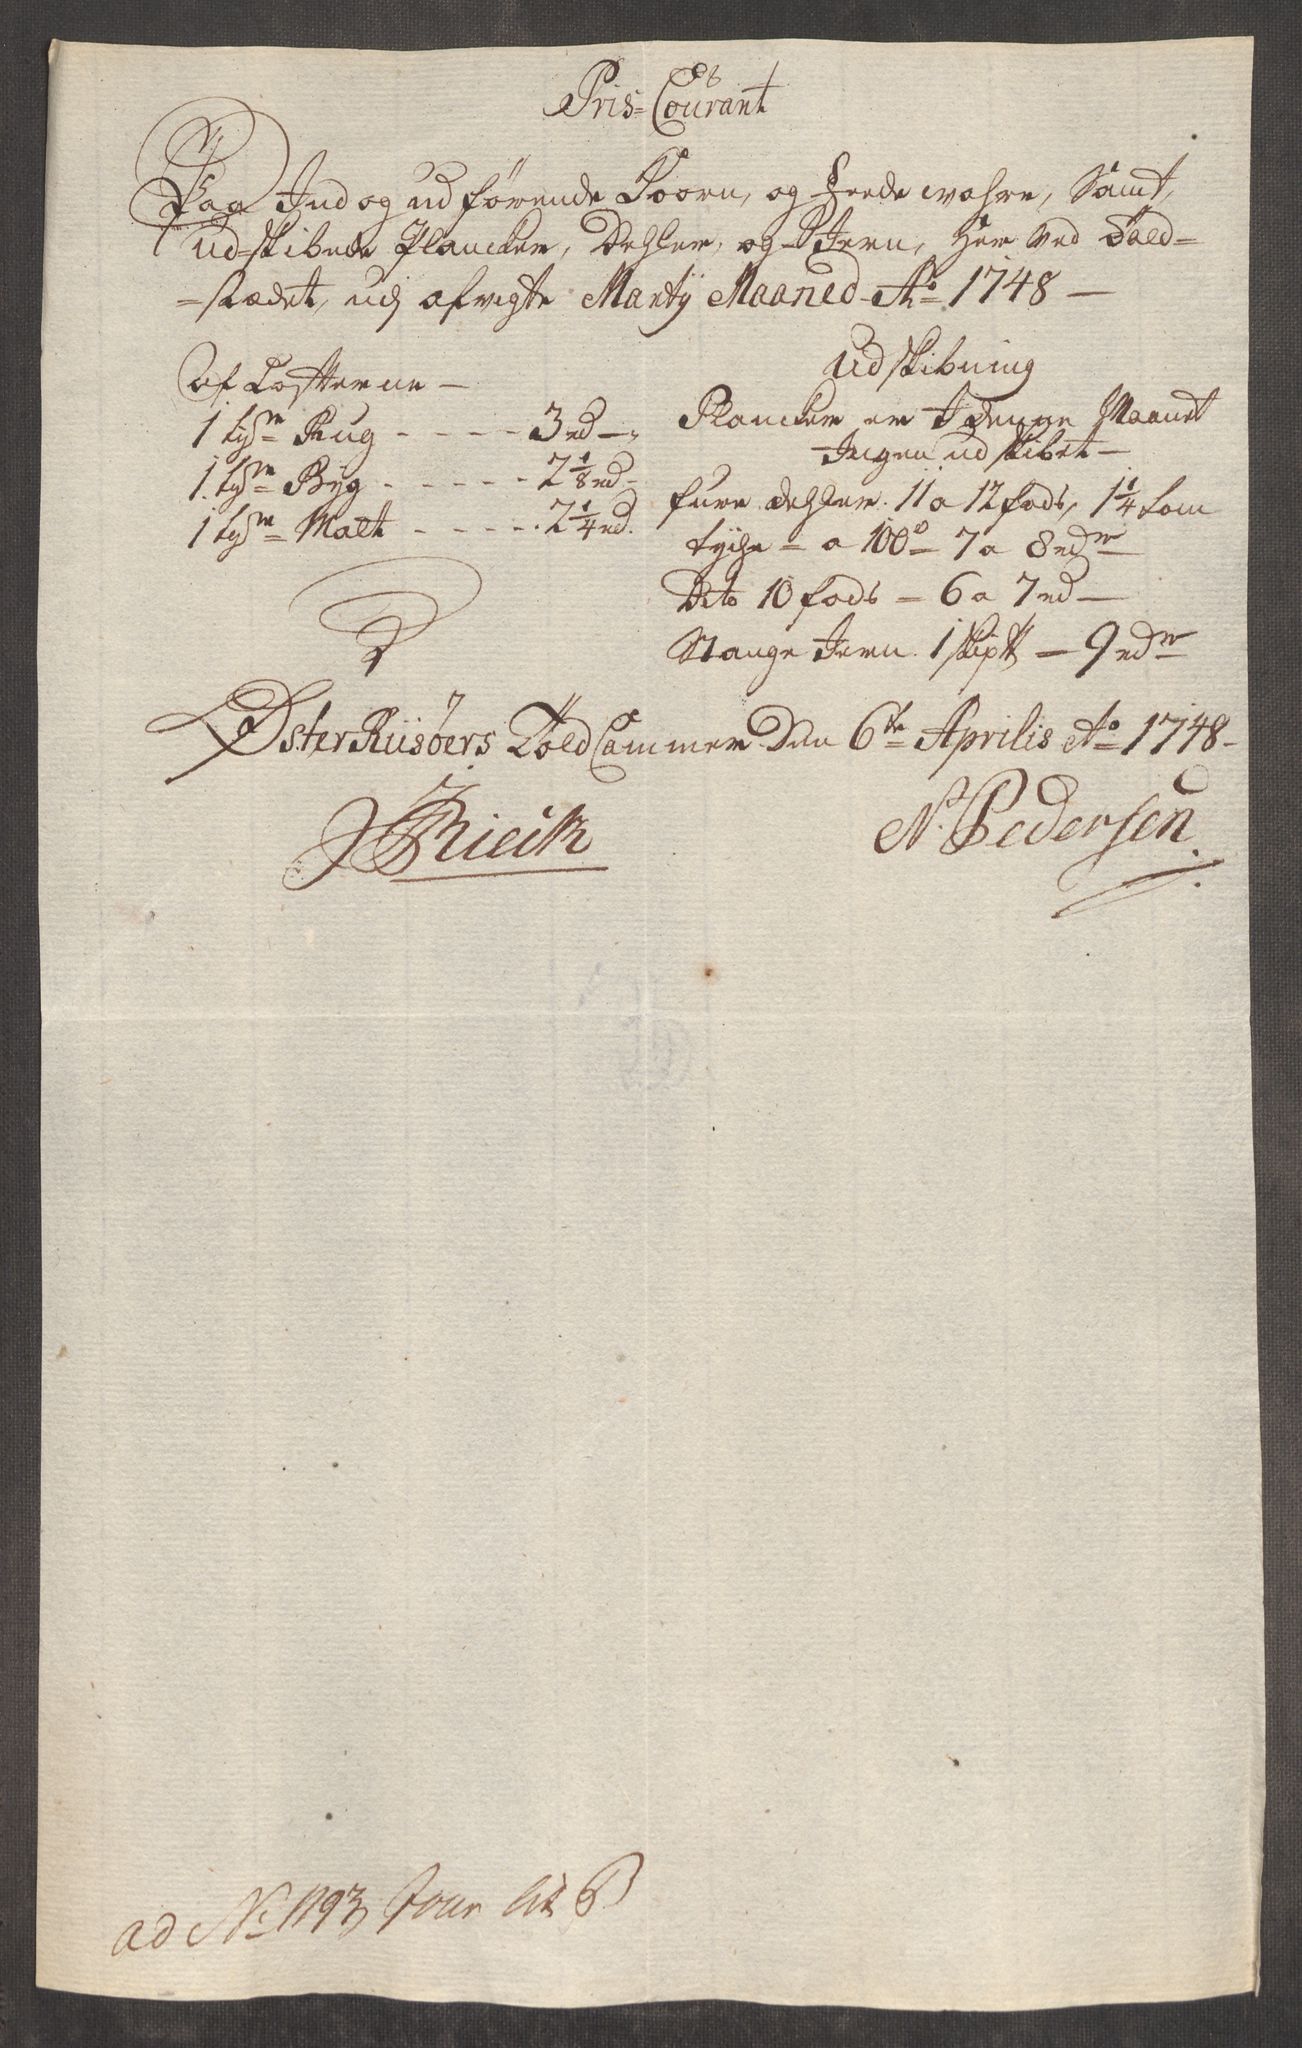 Pris-Courant
Paa Ind og udførende Koorn, og Feede wahre, Samt,
ud-skibede Plancker, Dehler, og Jern, Her ved Told-
-stædet, udj afvigte Martij Maaned Ao 1748 —
af Losterne —
1 tyn Rug - - - - 3 rd —
1 tyn Byg - - - - - 2 1/8 rd -
1 tyn Malt - - - - - 2 1/4 rd.
Udskibning
Plancker er I denne Maanet
Ingen udskibet —
furu dehler 11 a 12 fods, 1 1/4 tom
tyche = a 100 = 7 a 8 rdr
Dito 10 fods = 6 a 7 rd —
Stange Jern 1 skipt — 9 rdr
Øster Riisøers Told Cammer Den 6te Aprilis Ao 1748 -
N. Pedersen
ad No 1193 Jour lit B